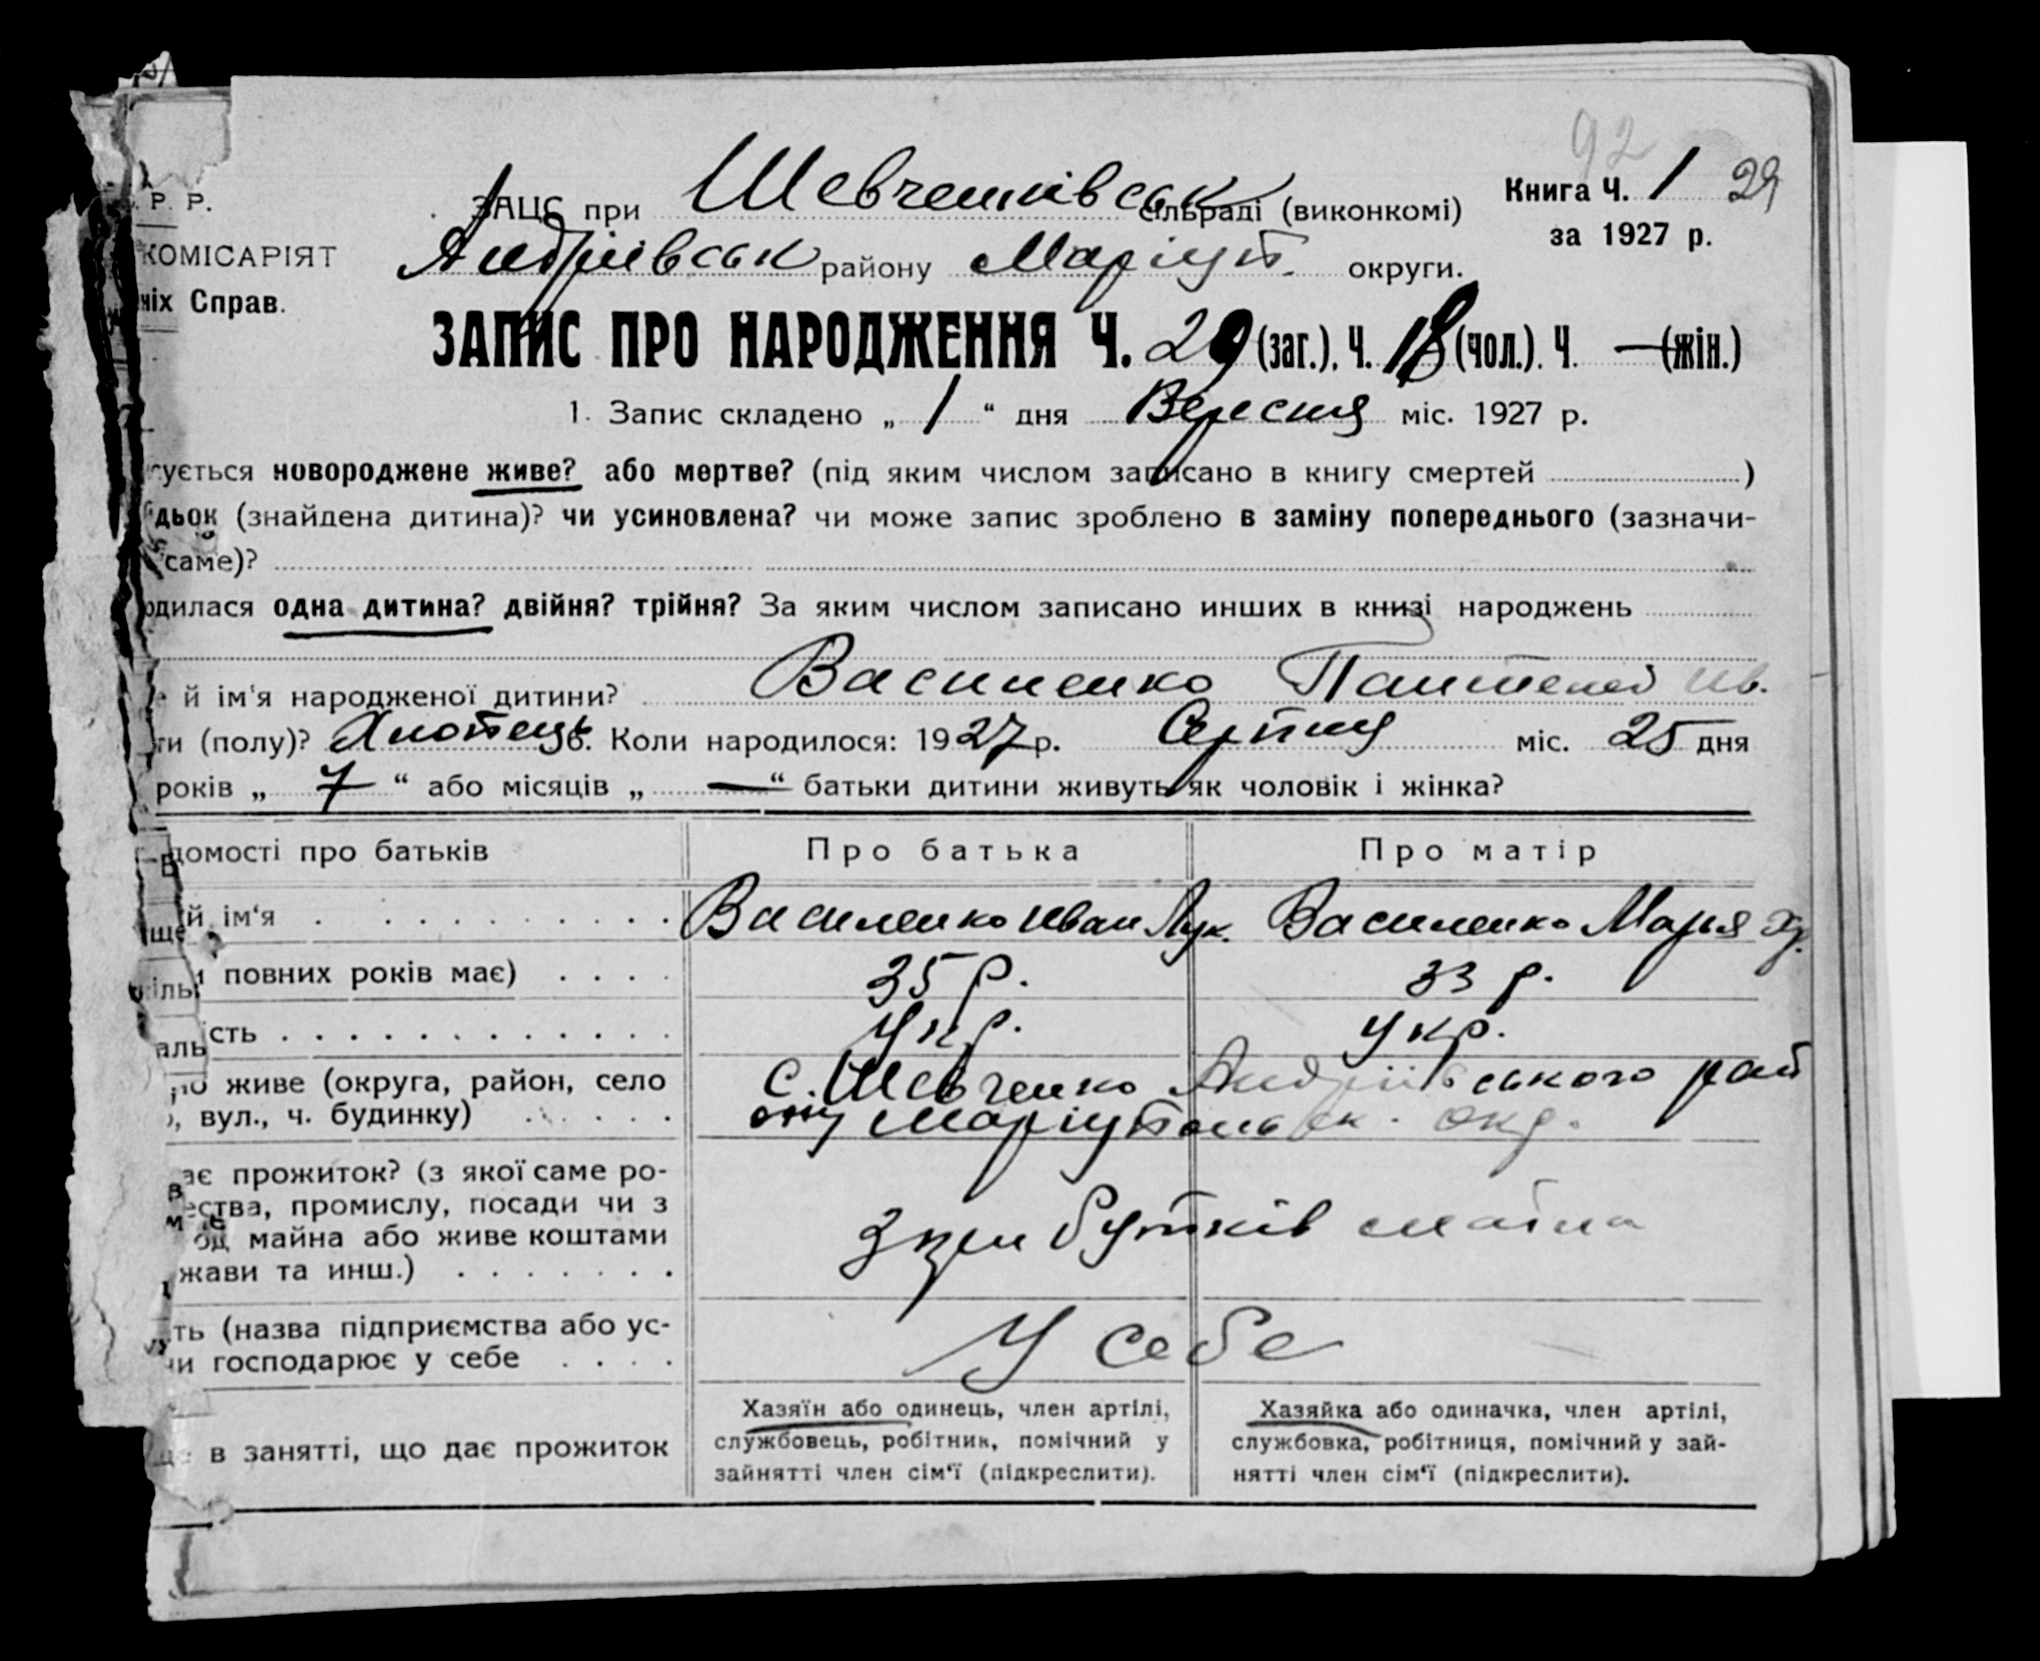 92
ЗАЦС при Шевченківськ сільраді (виконкомі) Книга Ч. 1 29
Р. Р. за 1927 р.
КОМІСАРІЯТ Андріївськ районy Маріуп. округи.
ніх Справ.
ЗАПИС ПРО НАРОДЖЕННЯ Ч. 29 (заг.). Ч. 18 (чол.). Ч. — (жін.)
1. Запис складено „ 1 “ дня Вересня міс. 1927 р.
сується новороджене живе? або мертве? (під яким числом записано в книгу смертей )
дьок (знайдена дитина)? чи усиновлена? чи може запис зроблено в заміну попереднього (зазначи-
саме)?
одилася одна дитина? двійня? трійня? За яким числом записано инших в книзі народжень
й ім'я народженої дитини? Василенко Пантелей Ив.
ти (полу)? Хлопець 6. Коли народилося: 1927 р. Серпня міс. 25 дня
років „ 7 “ або місяців „ — “ батьки дитини живуть як чоловік і жінка?
домості про батьків Про батька Про матір
й ім'я Василенко Иван Лук. Василенко Марья
повних років має) 35 р. 33 р.
ість Укр. Укр.
живе (округа, район, село с. Шевченко Андріївського рай
, вул., ч. будинку) ону Маріупольськ. окр.
ає прожиток? (з якої саме ро-
ества, промислу, посади чи з
од майна або живе коштами з майна
жави та инш.)
ть (назва підприємства або ус- У себе
чи господарює у себе
Хазяїн або одинець, член артілі, Хазяйка або одиначка, член артілі,
ще в занятті, що дає прожиток службовець, робітник, помічний у службовка, робітниця, помічний у зай-
зайнятті член сім'ї (підкреслити). нятті член сім'ї (підкреслити).